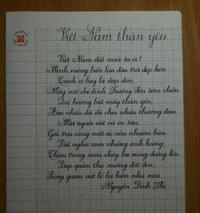 Việt Nam thân yêu
Việt Nam đất nước ta ơi!
Mênh mông biển lúa đâu trời đẹp hơn
Cánh cò bay lả dập dờn,
Mây mờ che đỉnh Trường Sơn sớm chiều.
Quê hương biết mấy thân yêu,
Bao nhiêu đời đã chịu nhiều thương đau
Mặt người vất vả in sâu,
Gái trai cũng một áo nâu nhuộm bùn.
Đất nghèo nuôi những anh hùng,
Chìm trong máu chảy lại vùng đứng lên
Đạp quân thù xuống đất đen,
Súng gươm vứt bỏ lại hiền như xưa
Nguyễn Đình Thi